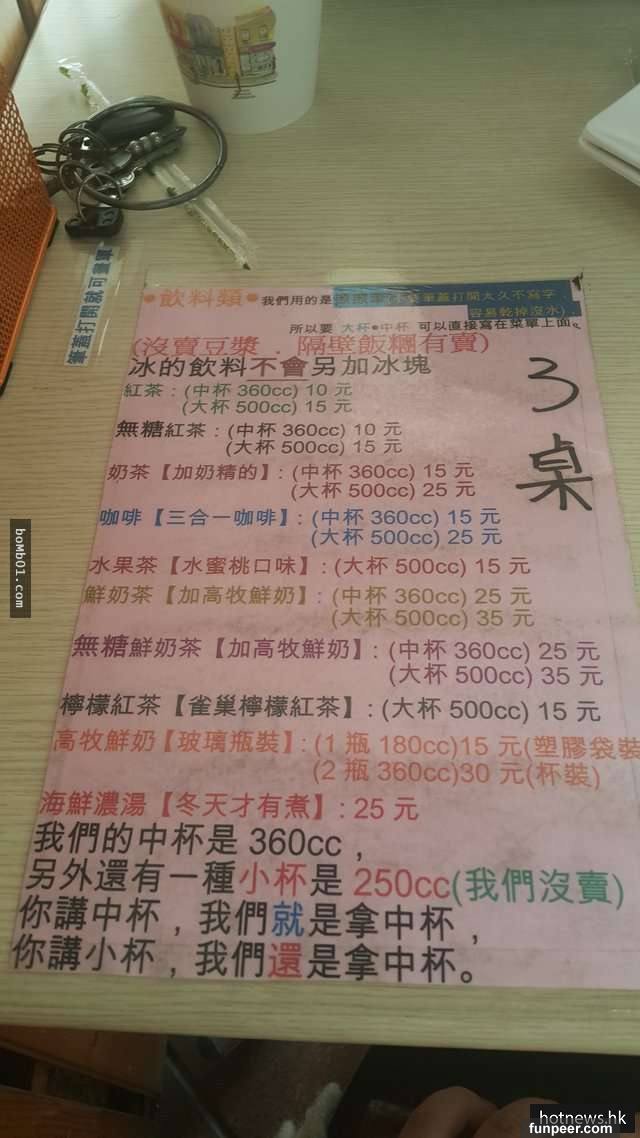 •飲料類•我們用的是 筆蓋打開太久不寫字
容易乾掉沒水)
所以要 大杯•中杯 可以直接寫在菜單上面。
(沒賣豆漿．隔壁飯糰有賣)
冰的飲料不會另加冰塊
紅茶：(中杯 360cc) 10 元
(大杯 500cc) 15 元
無糖紅茶：(中杯 360cc) 10 元
(大杯 500cc) 15 元
奶茶【加奶精的】：(中杯 360cc) 15 元
(大杯 500cc) 25 元
咖啡【三合一咖啡】：(中杯 360cc) 15 元
(大杯 500cc) 25 元
水果茶【水蜜桃口味】：(大杯 500cc) 15 元
鮮奶茶【加高牧鮮奶】：(中杯 360cc) 25 元
(大杯 500cc) 35 元
無糖鮮奶茶【加高牧鮮奶】：(中杯 360cc) 25 元
(大杯 500cc) 35 元
檸檬紅茶【雀巢檸檬紅茶】：(大杯 500cc) 15 元
高牧鮮奶【玻璃瓶裝】：(1 瓶 180cc)15 元(塑膠袋裝
(2 瓶 360cc)30 元(杯裝)
海鮮濃湯【冬天才有煮】：25 元
我們的中杯是 360cc，
另外還有一種小杯是 250cc(我們沒賣)
你講中杯，我們就是拿中杯，
你講小杯，我們還是拿中杯。
3
桌
筆蓋打開就可畫單
boMb01.com
hotnews.hk
funpeer.com